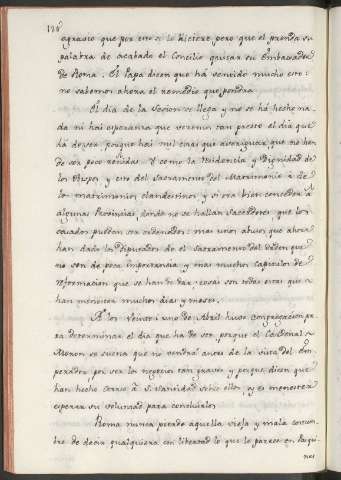 agravio que por esto se le hiciere, pero que él prenda su
palabra de acabado el Concilio quitar su Embaxador
de Roma. El Papa dicen que há sentido mucho esto:
no sabemos ahora el remedio que pondra
El dia de la Session se llega y no se há hecho na
da ni hai esperanza que veremos tan presto el dia que
há de ser, porque hai mil cosas que averiguar, que no han
de ser poco reñidas Y como la Residencia y Dignidad de
los Obispos y otro del Sacramento del Matrimonio i de
los matrimonios clandestinos y si era bien conceder á
algunas Provincias, donde no se hallan Sacerdotes, que los
casados puedan ser ordenados: mas unos abusos que ahora
han dado los Diputados de el Sacramento del Orden que
no son de poca importancia y mas muchos capitulos de
reformacion que se han de dar, cosas son todas estas que
han menester muchos dias y meses.
A los veinte i uno de Abril huvo congregacion pa
ra determinar el dia que há de ser, porque el Cardenal
Moron se suena que no vendrá antes de la vista del Em
perador, por ser los negocios tan graves y porque dicen que
han hecho correo á S. Santidad sobre ellos, y es menester
esperar su voluntad para concluirlos
Roma nunca perdió aquella vieja y mala costum
bre de decir qualquiera con libertad lo que le parece en Pasqui
nes